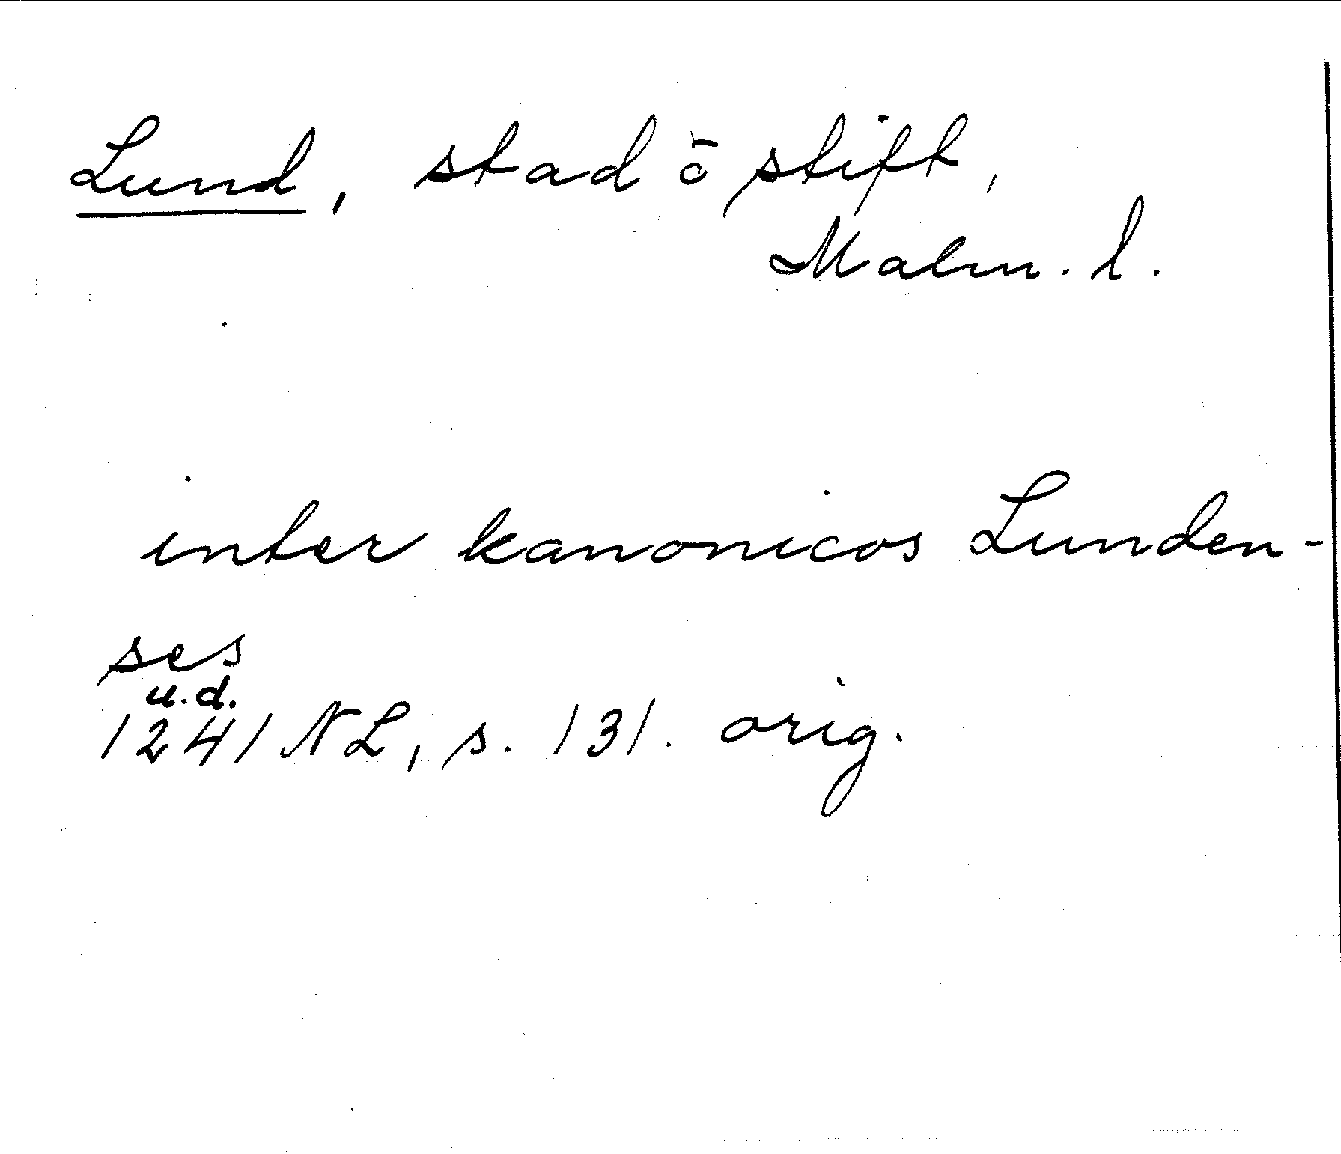 Lund, stad o stift,
Malm. l.
inter kanonicos Lunden-
ses
u.d.
1241 NL, s. 131. orig.